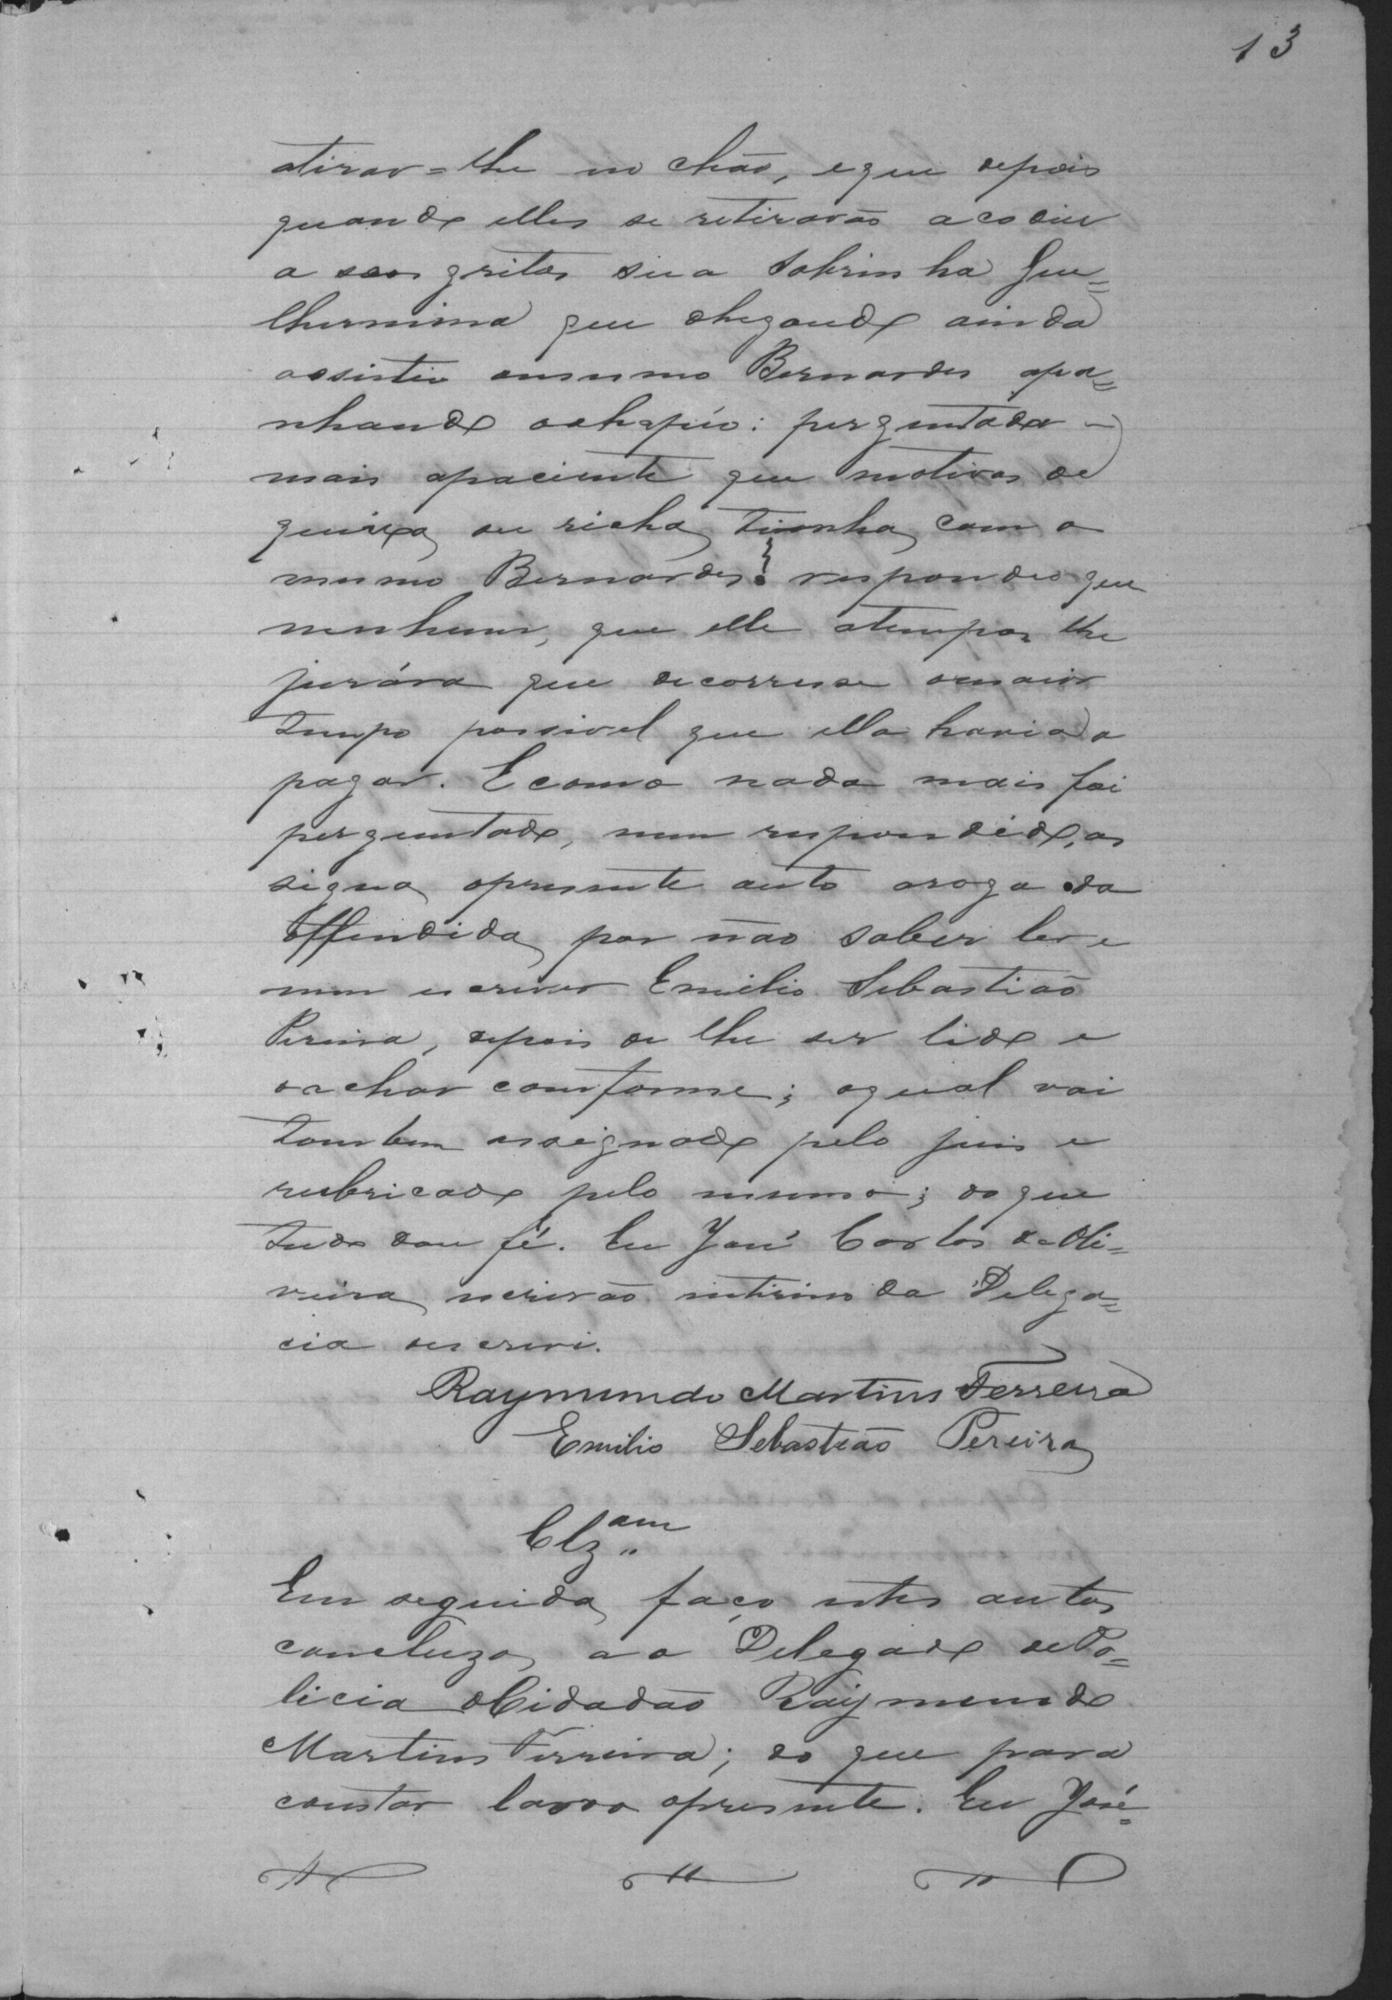 13
atirar=lhe no chão, e que depois
quando elles se retiravão acodiu
a seos gritos sua sobrinha Gui=
lhermina que chegando ainda
assistiu omesmo Bernardes apa=
nhando ochapéo: perguntada
mais apaciente que motivos de
queixa ou richa tinha com o
mesmo Bernardes? respondeo que
nenhum, que elle atempos lhe
jurára que decorresse omaior
tempo possivel que ella havia a
pagar. E como nada mais foi
perguntado, nem respondido, as
signa opresente auto arogo da
Offendida por não saber ler e
nem escrever Emilio Sebastião
Pereira, depois de lhe ser lido e
achar comforme; oqual vai
tambem assignado pelo juis e
rubricado pelo mesmo; do que
tudo dou fé. Eu José Carlos de Oli=
veira escrivão interino da Delega=
cia escrevi.
Raymundo Martins Ferreira
Emilio Sebastião Pereira
Clz.am
Em seguida faço estes autos
concluzos ao Delegado de Po=
licia oCidadão Raymundo
Martins Ferreira; do que para
constar lavro opresente. Eu José=